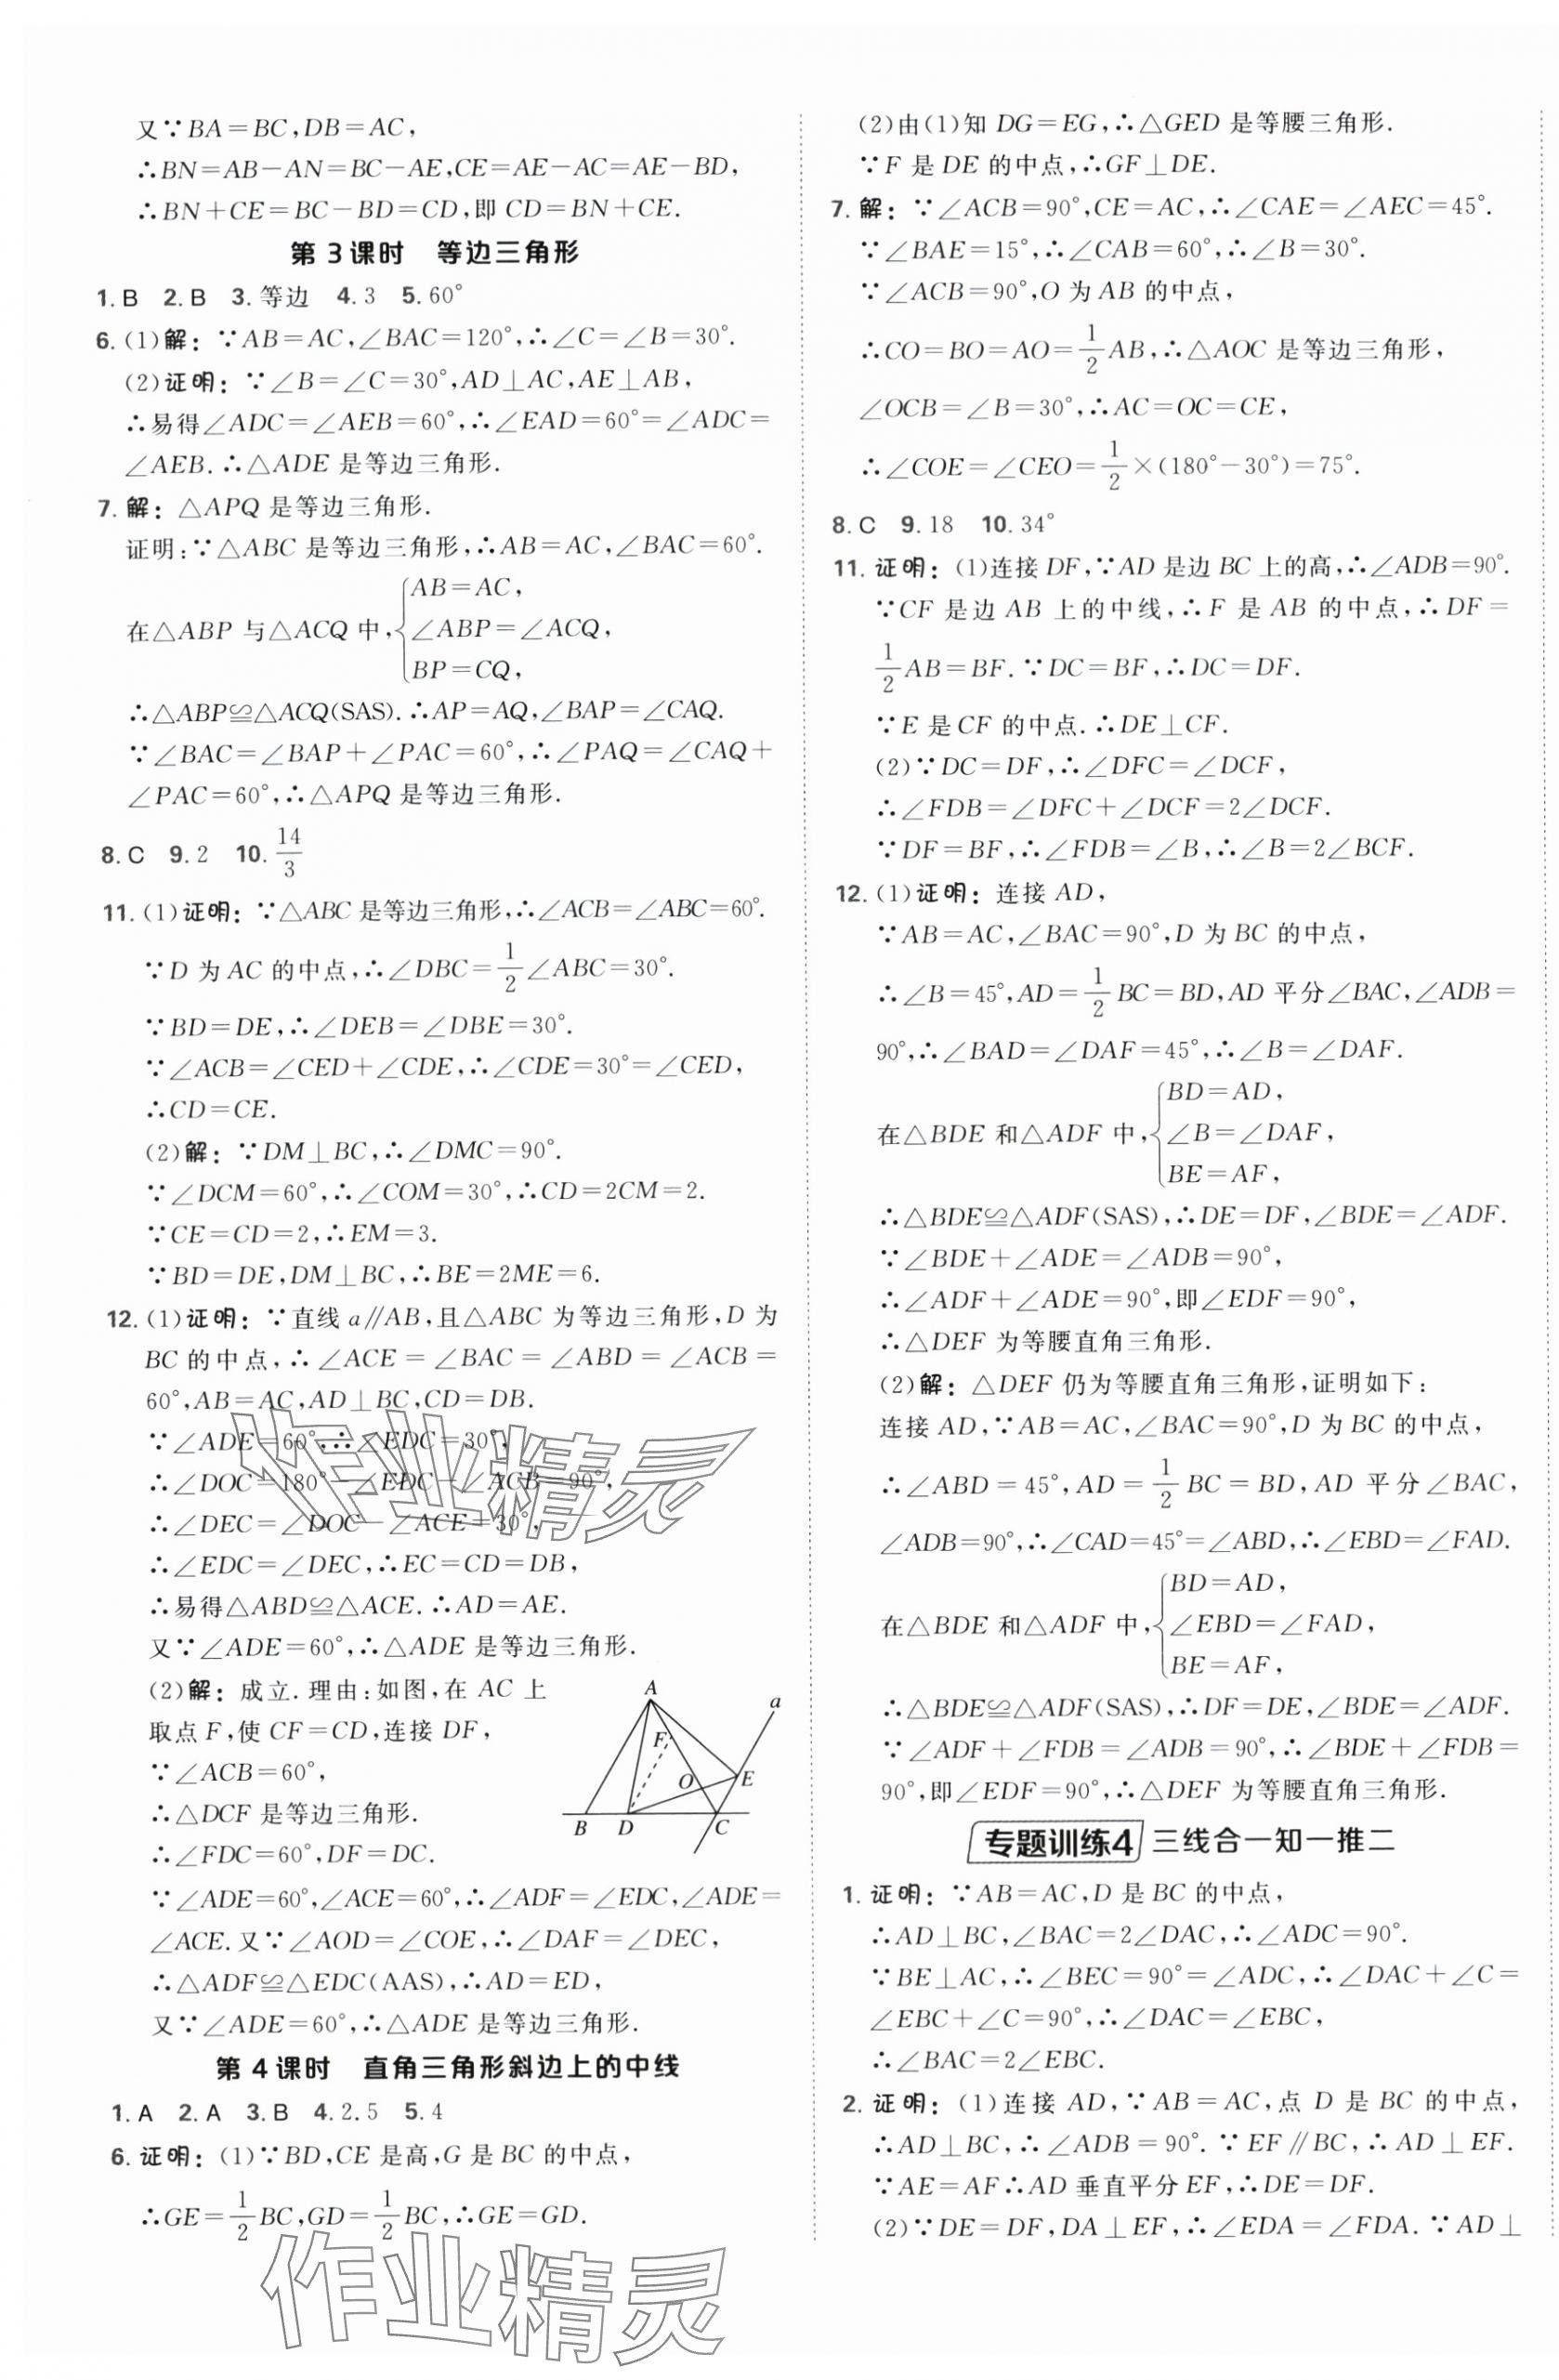 又∵BA=BC,DB=AC,
∴BN=AB-AN=BC-AE,CE=AE-AC=AE-BD,
∴BN+CE=BC-BD=CD,即 CD=BN+CE.
第 3 课时 等边三角形
1.B 2.B 3.等边 4.3 5.60°
6.(1)解:∵AB=AC,∠BAC=120°,∴∠C=∠B=30°.
(2)证明:∵∠B=∠C=30°,AD⊥AC,AE⊥AB,
∴易得∠ADC=∠AEB=60°,∴∠EAD=60°=∠ADC=
∠AEB.∴△ADE 是等边三角形.
7.解:△APQ 是等边三角形.
证明:∵△ABC 是等边三角形,∴AB=AC,∠BAC=60°.
在△ABP 与△ACQ 中,{AB=AC,
∠ABP=∠ACQ,
BP=CQ,
∴△ABP≌△ACQ(SAS).∴AP=AQ,∠BAP=∠CAQ.
∵∠BAC=∠BAP+∠PAC=60°,∴∠PAQ=∠CAQ+
∠PAC=60°,∴△APQ 是等边三角形.
8.C 9.2 10.14/3
11.(1)证明:∵△ABC 是等边三角形,∴∠ACB=∠ABC=60°.
∵D 为 AC 的中点,∴∠DBC=1/2∠ABC=30°.
∵BD=DE,∴∠DEB=∠DBE=30°.
∵∠ACB=∠CED+∠CDE,∴∠CDE=30°=∠CED,
∴CD=CE.
(2)解:∵DM⊥BC,∴∠DMC=90°.
∵∠DCM=60°,∴∠COM=30°,∴CD=2CM=2.
∵CE=CD=2,∴EM=3.
∵BD=DE,DM⊥BC,∴BE=2ME=6.
12.(1)证明:∵直线 a∥AB,且△ABC 为等边三角形,D 为
BC 的中点,∴∠ACE=∠BAC=∠ABD=∠ACB=
60°,AB=AC,AD⊥BC,CD=DB.
∵∠ADE=60°,∴∠EDC=30°,
∴∠DOC=180°-∠EDC-∠ACB=90°,
∴∠DEC=∠DOC-∠ACE=30°,
∴∠EDC=∠DEC,∴EC=CD=DB,
∴易得△ABD≌△ACE.∴AD=AE.
又∵∠ADE=60°,∴△ADE 是等边三角形.
(2)解:成立.理由:如图,在 AC 上
取点 F,使 CF=CD,连接 DF,
∵∠ACB=60°,
∴△DCF 是等边三角形.
∴∠FDC=60°,DF=DC.
A
a
F
O
E
B
D
C
∵∠ADE=60°,∠ACE=60°,∴∠ADF=∠EDC,∠ADE=
∠ACE.又∵∠AOD=∠COE,∴∠DAF=∠DEC,
∴△ADF≌△EDC(AAS),∴AD=ED,
又∵∠ADE=60°,∴△ADE 是等边三角形.
第 4 课时 直角三角形斜边上的中线
1.A 2.A 3.B 4.2.5 5.4
6.证明:(1)∵BD,CE 是高,G 是 BC 的中点,
∴GE=1/2BC,GD=1/2BC,∴GE=GD.
(2)由(1)知 DG=EG,∴△GED 是等腰三角形.
∵F 是 DE 的中点,∴GF⊥DE.
7.解:∵∠ACB=90°,CE=AC,∴∠CAE=∠AEC=45°.
∵∠BAE=15°,∴∠CAB=60°,∴∠B=30°.
∵∠ACB=90°,O 为 AB 的中点,
∴CO=BO=AO=1/2AB,∴△AOC 是等边三角形,
∠OCB=∠B=30°,∴AC=OC=CE,
∴∠COE=∠CEO=1/2×(180°-30°)=75°.
8.C 9.18 10.34°
11.证明:(1)连接 DF,∵AD 是边 BC 上的高,∴∠ADB=90°.
∵CF 是边 AB 上的中线,∴F 是 AB 的中点,∴DF=
1/2AB=BF.∵DC=BF,∴DC=DF.
∵E 是 CF 的中点.∴DE⊥CF.
(2)∵DC=DF,∴∠DFC=∠DCF,
∴∠FDB=∠DFC+∠DCF=2∠DCF.
∵DF=BF,∴∠FDB=∠B,∴∠B=2∠BCF.
12.(1)证明:连接 AD,
∵AB=AC,∠BAC=90°,D 为 BC 的中点,
∴∠B=45°,AD=1/2BC=BD,AD 平分∠BAC,∠ADB=
90°,∴∠BAD=∠DAF=45°,∴∠B=∠DAF.
在△BDE 和△ADF 中,{BD=AD,
∠B=∠DAF,
BE=AF,
∴△BDE≌△ADF(SAS),∴DE=DF,∠BDE=∠ADF.
∵∠BDE+∠ADE=∠ADB=90°,
∴∠ADF+∠ADE=90°,即∠EDF=90°,
∴△DEF 为等腰直角三角形.
(2)解:△DEF 仍为等腰直角三角形,证明如下:
连接 AD,∵AB=AC,∠BAC=90°,D 为 BC 的中点,
∴∠ABD=45°,AD=1/2BC=BD,AD 平分∠BAC,
∠ADB=90°,∴∠CAD=45°=∠ABD,∴∠EBD=∠FAD.
在△BDE 和△ADF 中,{BD=AD,
∠EBD=∠FAD,
BE=AF,
∴△BDE≌△ADF(SAS),∴DF=DE,∠BDE=∠ADF.
∵∠ADF+∠FDB=∠ADB=90°,∴∠BDE+∠FDB=
90°,即∠EDF=90°,∴△DEF 为等腰直角三角形.
专题训练4 三线合一知一推二
1.证明:∵AB=AC,D 是 BC 的中点,
∴AD⊥BC,∠BAC=2∠DAC,∴∠ADC=90°.
∵BE⊥AC,∴∠BEC=90°=∠ADC,∴∠DAC+∠C=
∠EBC+∠C=90°,∴∠DAC=∠EBC,
∴∠BAC=2∠EBC.
2.证明:(1)连接 AD,∵AB=AC,点 D 是 BC 的中点,
∴AD⊥BC,∴∠ADB=90°.∵EF∥BC,∴AD⊥EF.
∵AE=AF∴AD 垂直平分 EF,∴DE=DF.
(2)∵DE=DF,DA⊥EF,∴∠EDA=∠FDA.∵AD⊥
作业精灵
作业精灵